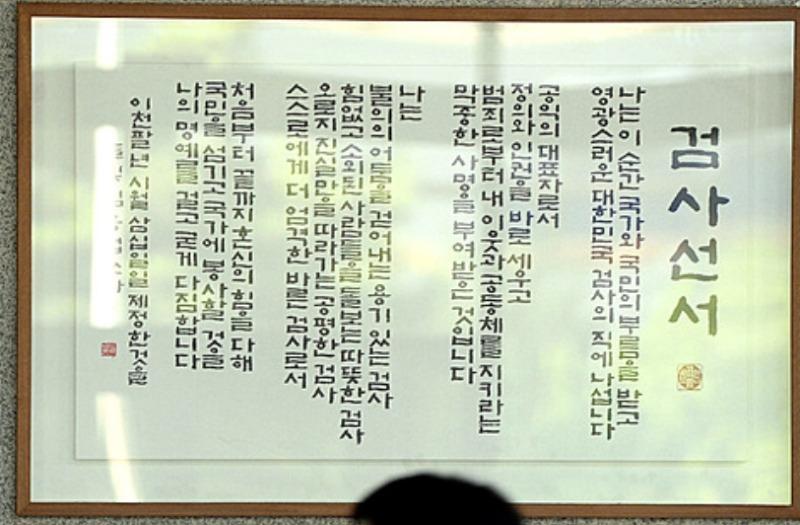 검사선서
나는 이 순간 국가와 국민의 부름을 받고
영광스러운 대한민국 검사의 직에 나섭니다
공익의 대표자로서
정의와 인권을 바로 세우고
범죄로부터 내 이웃과 공동체를 지키라는
막중한 사명을 부여받은 것입니다
나는
불의의 어둠을 걷어내는 용기 있는 검사
힘없고 소외된 사람들을 돌보는 따뜻한 검사
오로지 진실만을 따라가는 공평한 검사
스스로에게 더 엄격한 바른 검사로서
처음부터 끝까지 혼신의 힘을 다해
국민을 섬기고 국가에 봉사할 것을
나의 명예를 걸고 굳게 다짐합니다
이천팔년 시월 삼십일일 제정한것을